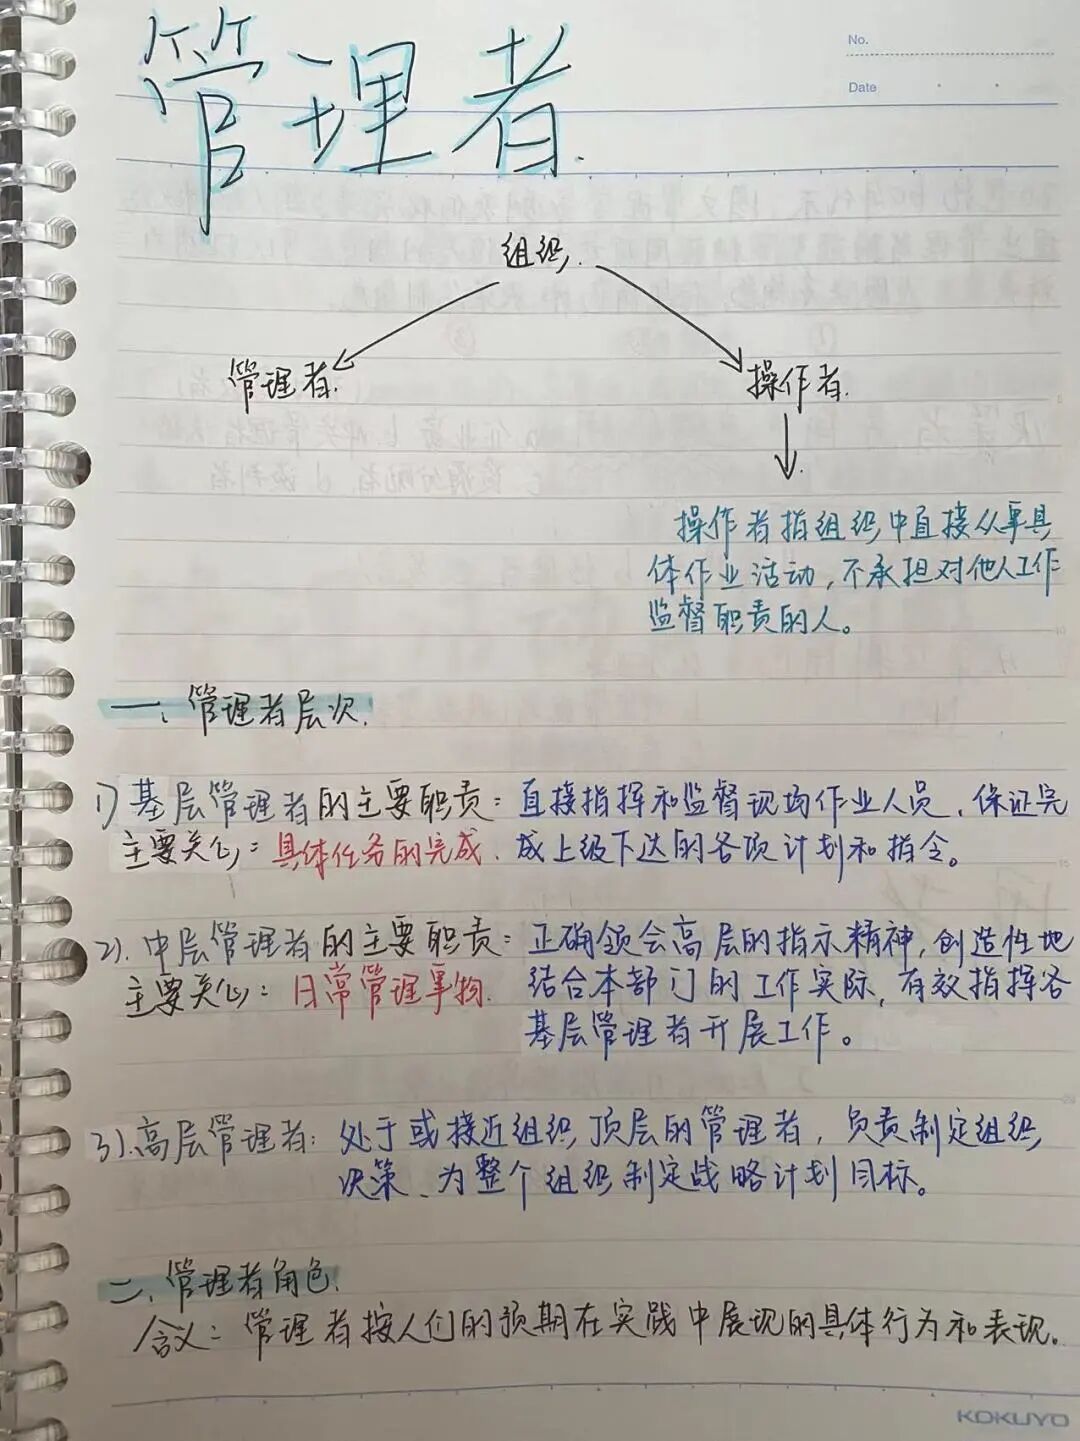 No.
Date
管理者.
组织.
管理者.
操作者.
操作者指组织中直接从事具
体作业活动,不承担对他人工作
监督职责的人。
一、管理者层次.
1)基层管理者的主要职责:直接指挥和监督现场作业人员、保证完
主要关心:具体任务的完成. 成上级下达的各项计划和指令。
2).中层管理者的主要职责:正确领会高层的指示精神,创造性地
主要关心:日常管理事物. 结合本部门的工作实际,有效指挥各
基层管理者开展工作。
3).高层管理者:处于或接近组织顶层的管理者,负责制定组织
决策、为整个组织制定战略计划目标。
二、管理者角色.
含义:管理者按人们的预期在实践中展现的具体行为和表现。
KOKUYO